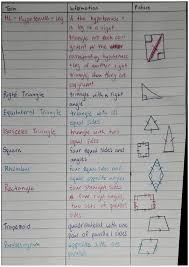 Term Information Picture
HL = Hypotenuse - Leg
If the hypotenuse
& a leg of a right
triangle are each con-
gruent to the
corresponding hypotenuse
& leg of another right
triangle, then they are
congruent
Right Triangle triangle with a right
angle
Equilateral Triangle triangle with all
equal sides
Isosceles Triangle triangle with two
equal sides
Square four equal sides and
angles
Rhombus four equal sides and
opposite angles
Rectangle four straight sides
& four right angles,
two sets of parallel
sides
Trapezoid quadrilateral with one
pair of parallel sides
Parallelogram opposite sides are
parallel